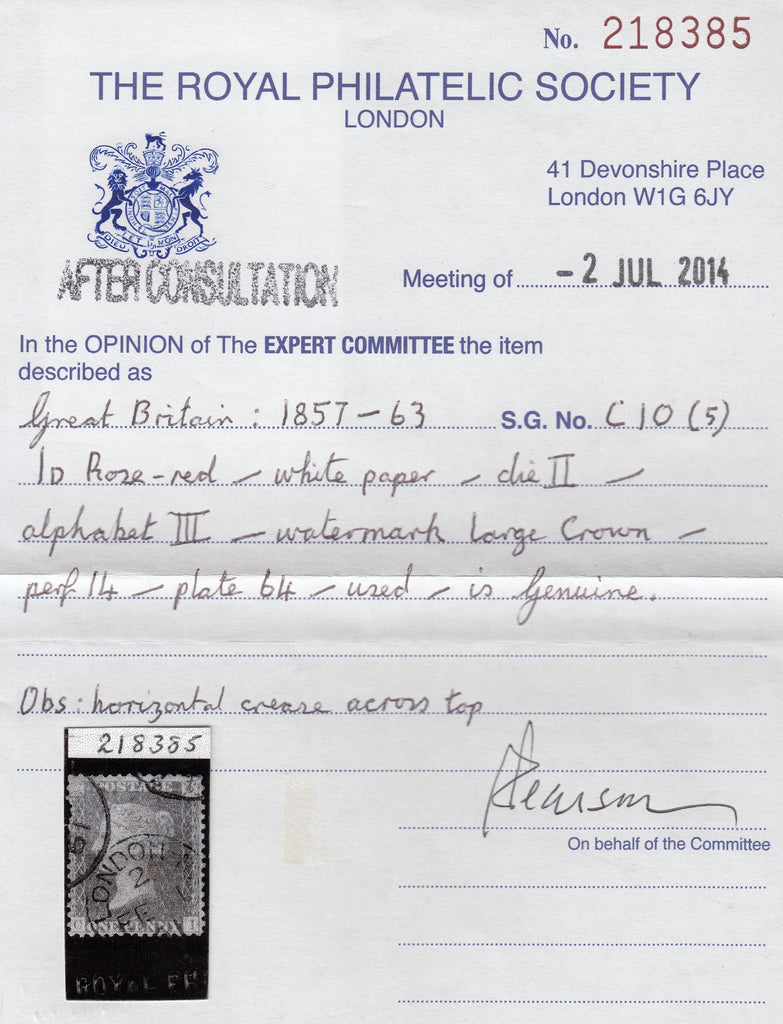 No. 218385
THE ROYAL PHILATELIC SOCIETY
LONDON
41 Devonshire Place
London W1G 6JY
DIEU ET MON DROIT
AFTER CONSULTATION
Meeting of - 2 JUL 2014
In the OPINION of The EXPERT COMMITTEE the item
described as
Great Britain : 1857 - 63 S.G. No. C 10 (5)
1D Rose-red - white paper - die II -
alphabet III - watermark Large Crown -
perf 14 - plate 64 - used - is Genuine.
Obs : horizontal crease across top
218385
POSTAGE
61
LONDON
2
FE
ONE PENNY
ROYAL PH
Pearson
On behalf of the Committee